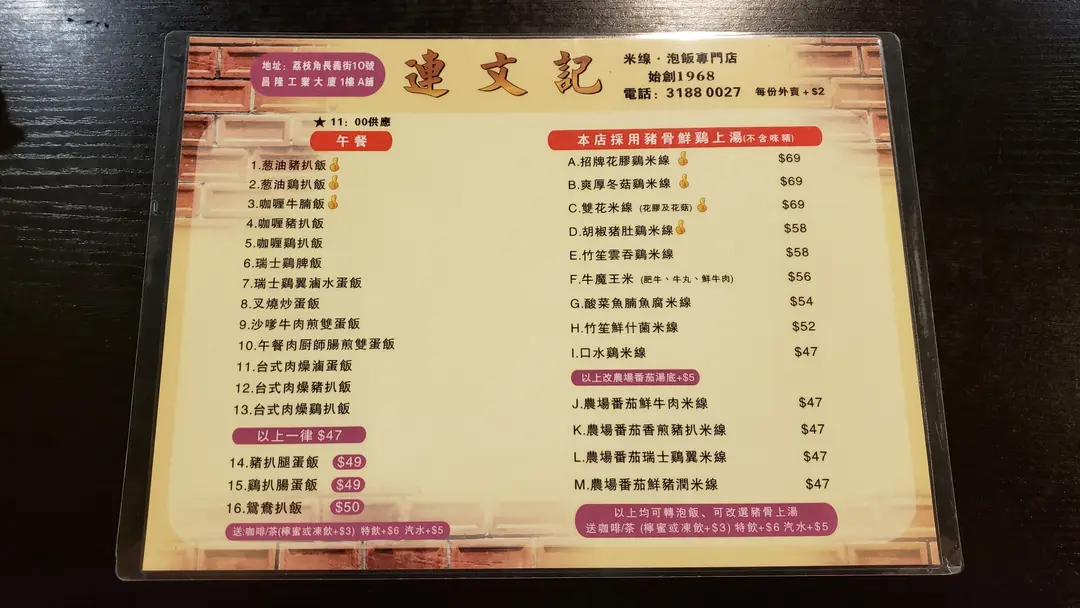 地址：荔枝角長義街10號
昌隆工業大廈1樓A舖
連文記
米線．泡飯專門店
始創1968
電話：3188 0027 每份外賣＋$2
★ 11：00供應
午餐
1.葱油豬扒飯
2.葱油鷄扒飯
3.咖喱牛腩飯
4.咖喱豬扒飯
5.咖喱鷄扒飯
6.瑞士鷄脾飯
7.瑞士鷄翼滷水蛋飯
8.叉燒炒蛋飯
9.沙嗲牛肉煎雙蛋飯
10.午餐肉厨師腸煎雙蛋飯
11.台式肉燥滷蛋飯
12.台式肉燥豬扒飯
13.台式肉燥鷄扒飯
以上一律 $47
14.豬扒腿蛋飯 $49
15.鷄扒腸蛋飯 $49
16.鴛鴦扒飯 $50
送:咖啡/茶(檸蜜或凍飲+$3) 特飲+$6 汽水+$5
本店採用豬骨鮮鷄上湯(不含味精)
A.招牌花膠鷄米線 $69
B.爽厚冬菇鷄米線 $69
C.雙花米線 (花膠及花菇) $69
D.胡椒猪肚鷄米線 $58
E.竹笙雲吞鷄米線 $58
F.牛魔王米 (肥牛、牛丸、鮮牛肉) $56
G.酸菜魚腩魚腐米線 $54
H.竹笙鮮什菌米線 $52
I.口水鷄米線 $47
以上改農場番茄湯底+$5
J.農場番茄鮮牛肉米線 $47
K.農場番茄香煎豬扒米線 $47
L.農場番茄瑞士鷄翼米線 $47
M.農場番茄鮮豬潤米線 $47
以上均可轉泡飯、可改選豬骨上湯
送咖啡/茶 (檸蜜或凍飲+$3) 特飲+$6 汽水+$5